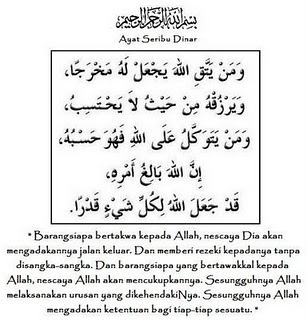 بسم الله الرحمن الرحيم
Ayat Seribu Dinar
وَمَنْ يَتَّقِ اللهَ يَجْعَلْ لَهُ مَخْرَجًا،
وَيَرْزُقْهُ مِنْ حَيْثُ لاَ يَحْتَسِبُ،
وَمَنْ يَتَوَكَّلْ عَلَى اللهِ فَهُوَ حَسْبُهُ،
إِنَّ اللهَ بَالِغُ أَمْرِهِ،
قَدْ جَعَلَ اللهُ لِكُلِّ شَيْءٍ قَدْرًا.
" Barangsiapa bertakwa kepada Allah, nescaya Dia akan
mengadakannya jalan keluar. Dan memberi rezeki kepadanya tanpa
disangka-sangka. Dan barangsiapa yang bertawakkal kepada
Allah, nescaya Allah akan mencukupkannya. Sesungguhnya Allah
melaksanakan urusan yang dikehendakiNya. Sesungguhnya Allah
mengadakan ketentuan bagi tiap-tiap sesuatu. "